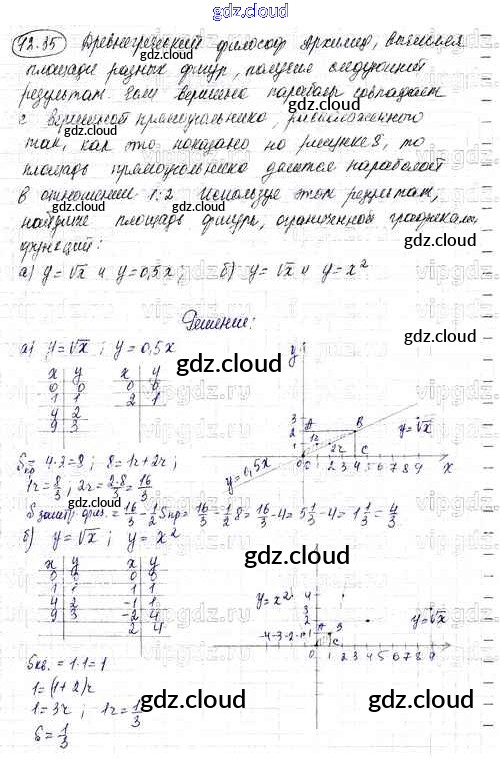 gdz.cloud
12.35 Древнегреческий философ Архимед, вычисляя
площади разных фигур, получил следующий
результат. Если вершина параболы совпадает
с вершиной прямоугольника, расположенного
так, как это показано на рисунке 8, то
площадь прямоугольника делится параболой
в отношении 1:2. Используя этот результат,
найдите площадь фигуры, ограниченной графиками
функций:
а) y=√x и y=0,5x; б) y=√x и y=x²
Решение:
а) y=√x; y=0,5x
x y x y
0 0 0 0
1 1 2 1
4 2
9 3
y
3
2
1
A B
1r 2r
C
0 1 2 3 4 5 6 7 8 9 x
y=√x
y=0,5x
Sпр = 4·2=8; 8=1r+2r;
1r=8/3; 2r=2·8/3=16/3
Sзаштр. фиг.=16/3-1/2Sпр=16/3-1/2 8=16/3-4=5 1/3-4=1 1/3=4/3
б) y=√x; y=x²
x y x y
0 0 0 0
1 1 1 1
4 2 -1 1
9 3 -2 4
2 4
y=x²
4
3
2
A B
C
-4-3-2-1 0 1 2 3 4 5 6 7 8 9
y=√x
Sкв. = 1·1=1
1=(1+2)r
1=3r; 1r=1/3
S=1/3
gdz.cloud
gdz.cloud
gdz.cloud
gdz.cloud
gdz.cloud
gdz.cloud
gdz.cloud
gdz.cloud
gdz.cloud
gdz.cloud